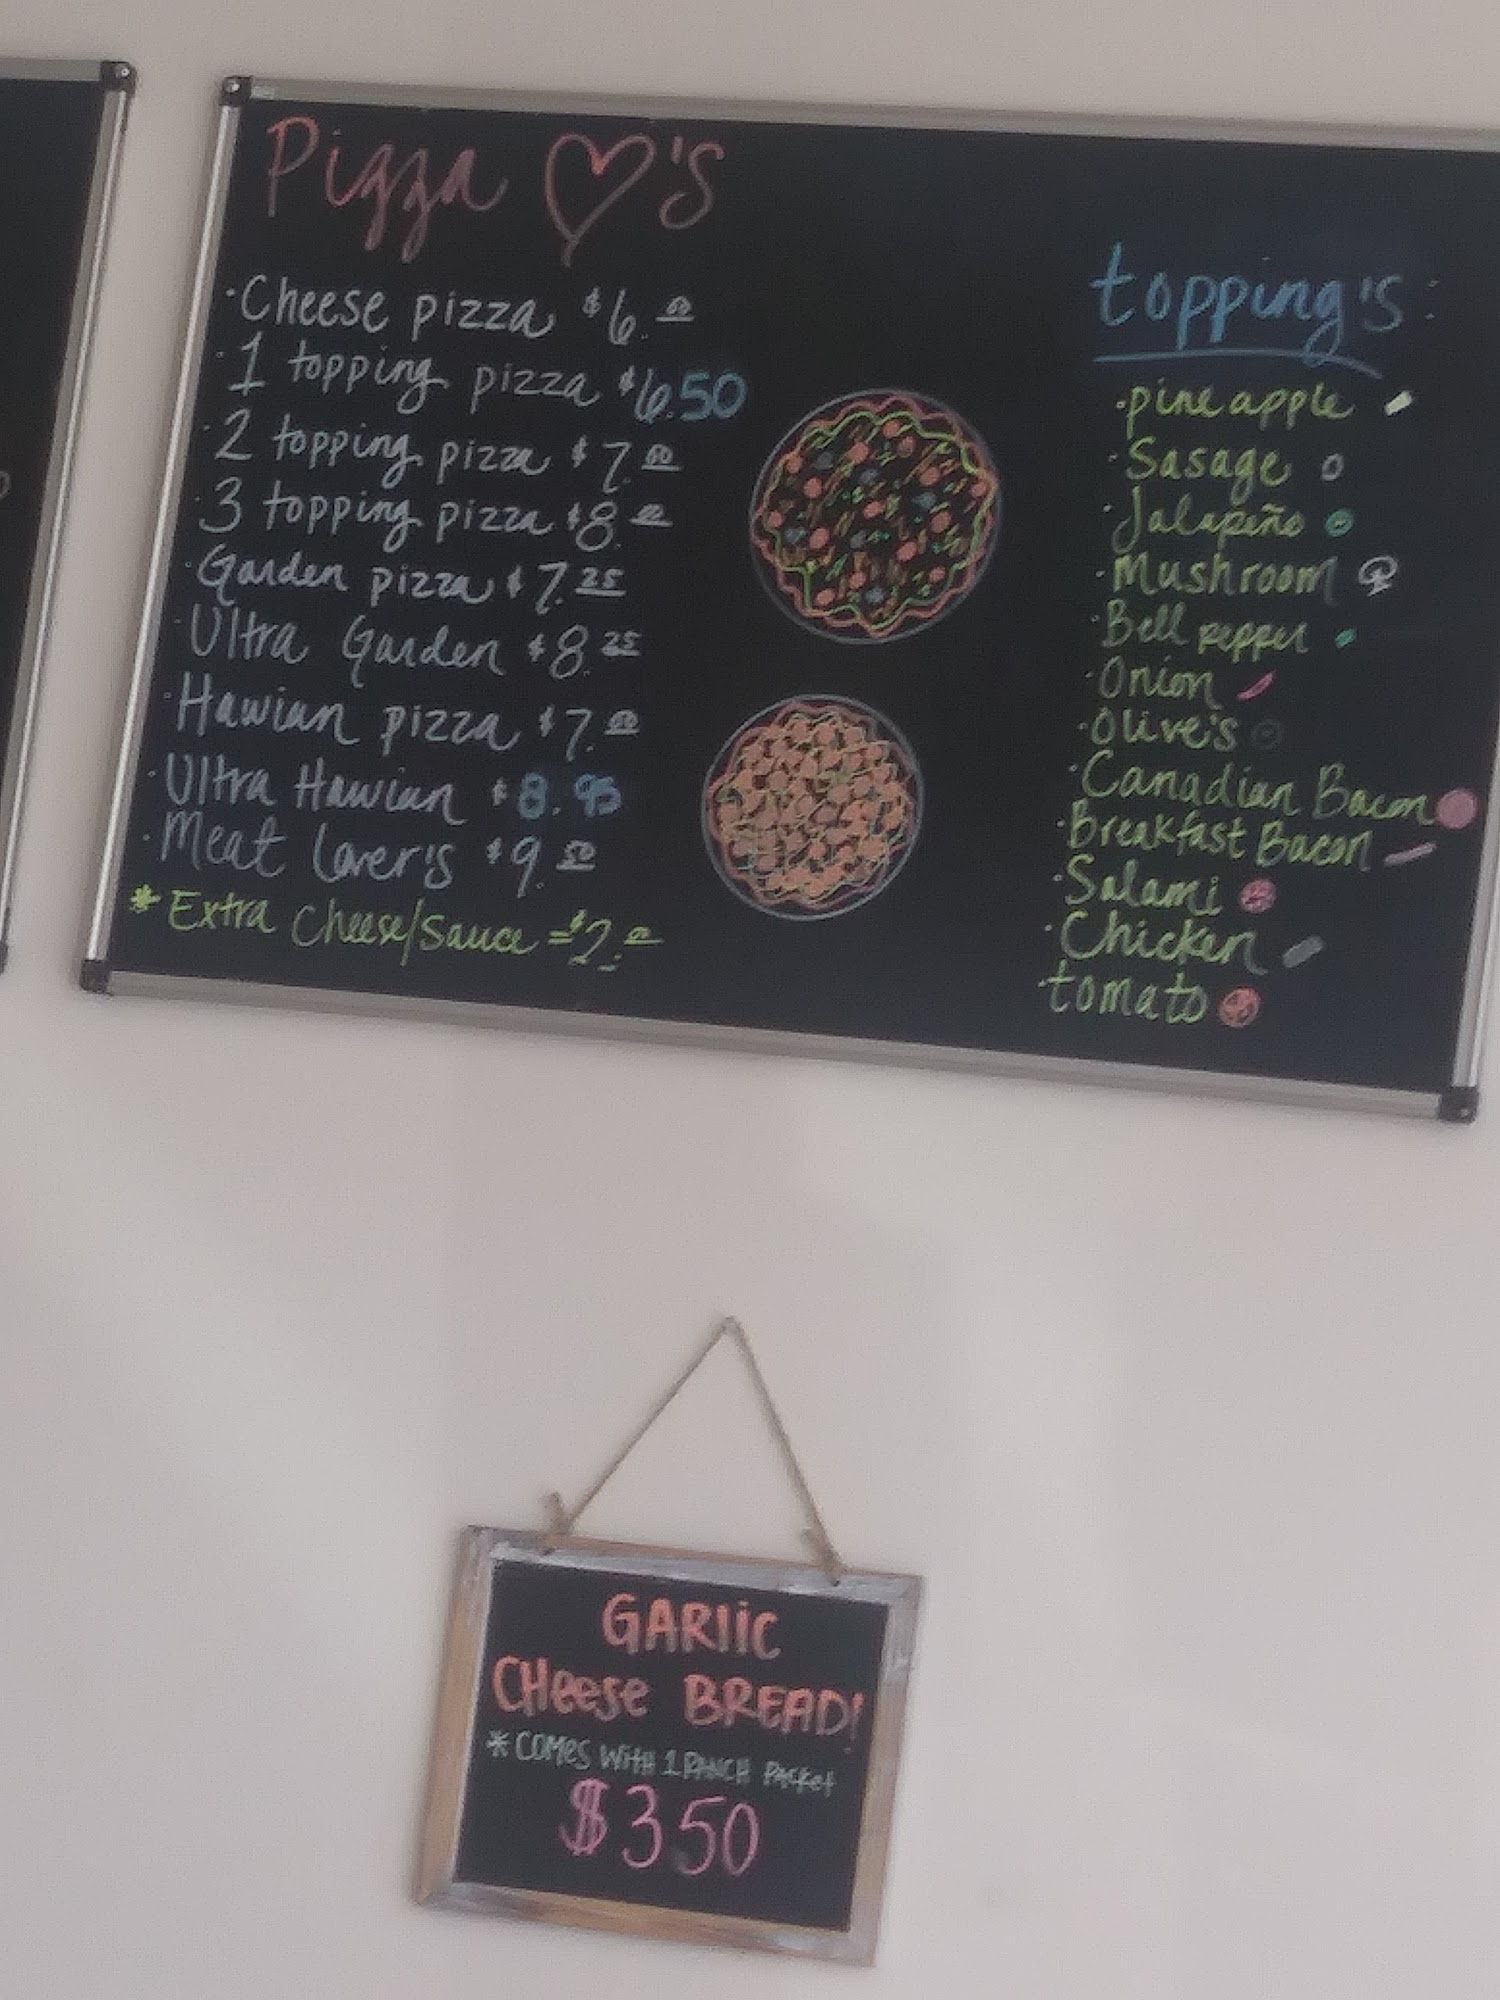 Pizza ♡'s
·Cheese pizza $6.00
·1 topping pizza $6.50
·2 topping pizza $7.00
·3 topping pizza $8.00
·Garden pizza $7.25
·Ultra Garden $8.25
·Hawian pizza $7.00
·Ultra Hawian $8.95
·Meat Lover's $9.50
*Extra Cheese/Sauce =$2.00
topping's:
·pineapple
·Sasage
·Jalapeño
·Mushroom
·Bell pepper
·Onion
·Olive's
·Canadian Bacon
·Breakfast Bacon
·Salami
·Chicken
·tomato
GARlic
CHeese BREAD!
*COMES WitH 1 RANCH PACket
$350